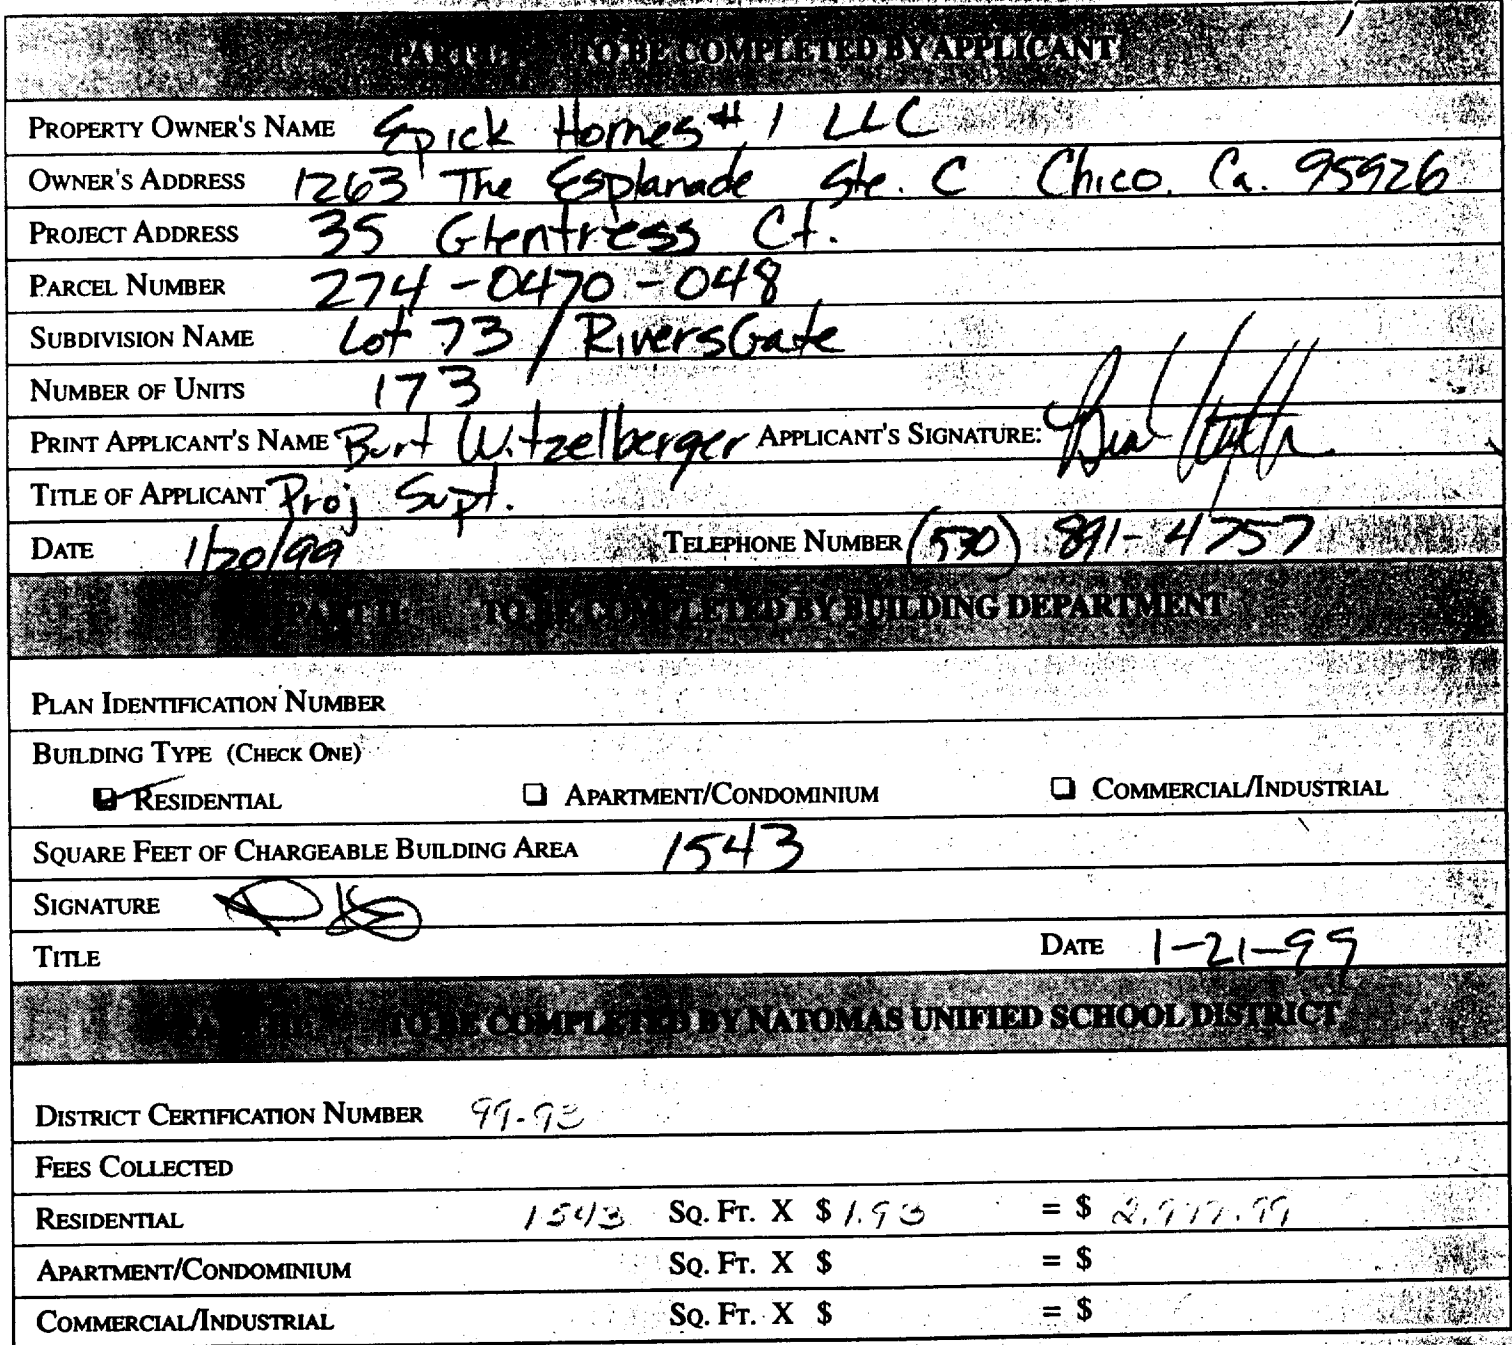 PART I: TO BE COMPLETED BY APPLICANT
PROPERTY OWNER'S NAME Epick Homes #1 LLC
OWNER'S ADDRESS 1263 The Esplanade Ste. C Chico, Ca. 95926
PROJECT ADDRESS 35 Glentress Ct.
PARCEL NUMBER 274-0470-048
SUBDIVISION NAME Lot 73 / RiversGate
NUMBER OF UNITS 173
PRINT APPLICANT'S NAME Burt Witzelberger APPLICANT'S SIGNATURE:
TITLE OF APPLICANT Proj Supt.
DATE 1/20/99 TELEPHONE NUMBER (530) 891-4757
PART II: TO BE COMPLETED BY BUILDING DEPARTMENT
PLAN IDENTIFICATION NUMBER
BUILDING TYPE (CHECK ONE)
RESIDENTIAL APARTMENT/CONDOMINIUM COMMERCIAL/INDUSTRIAL
SQUARE FEET OF CHARGEABLE BUILDING AREA 1543
SIGNATURE
TITLE DATE 1-21-99
PART III: TO BE COMPLETED BY NATOMAS UNIFIED SCHOOL DISTRICT
DISTRICT CERTIFICATION NUMBER 99-93
FEES COLLECTED
RESIDENTIAL 1543 SQ. FT. X $ 1.93 = $ 2,977.99
APARTMENT/CONDOMINIUM SQ. FT. X $ = $
COMMERCIAL/INDUSTRIAL SQ. FT. X $ = $